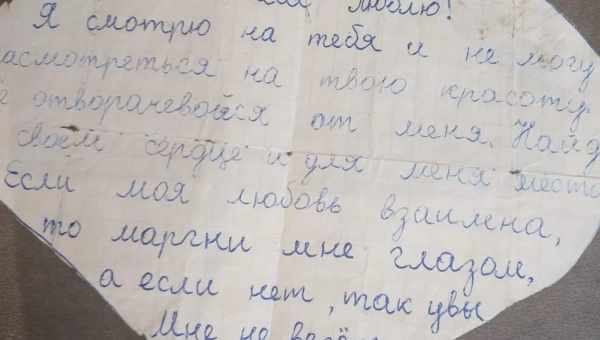 люблю!
Я смотрю на тебя и не могу
асмотреться на твою красоту.
отворачевойся от меня. Найд
своём сердце и для меня место
Если моя любовь взаимна,
то моргни мне глазом,
а если нет, так увы
Мне не